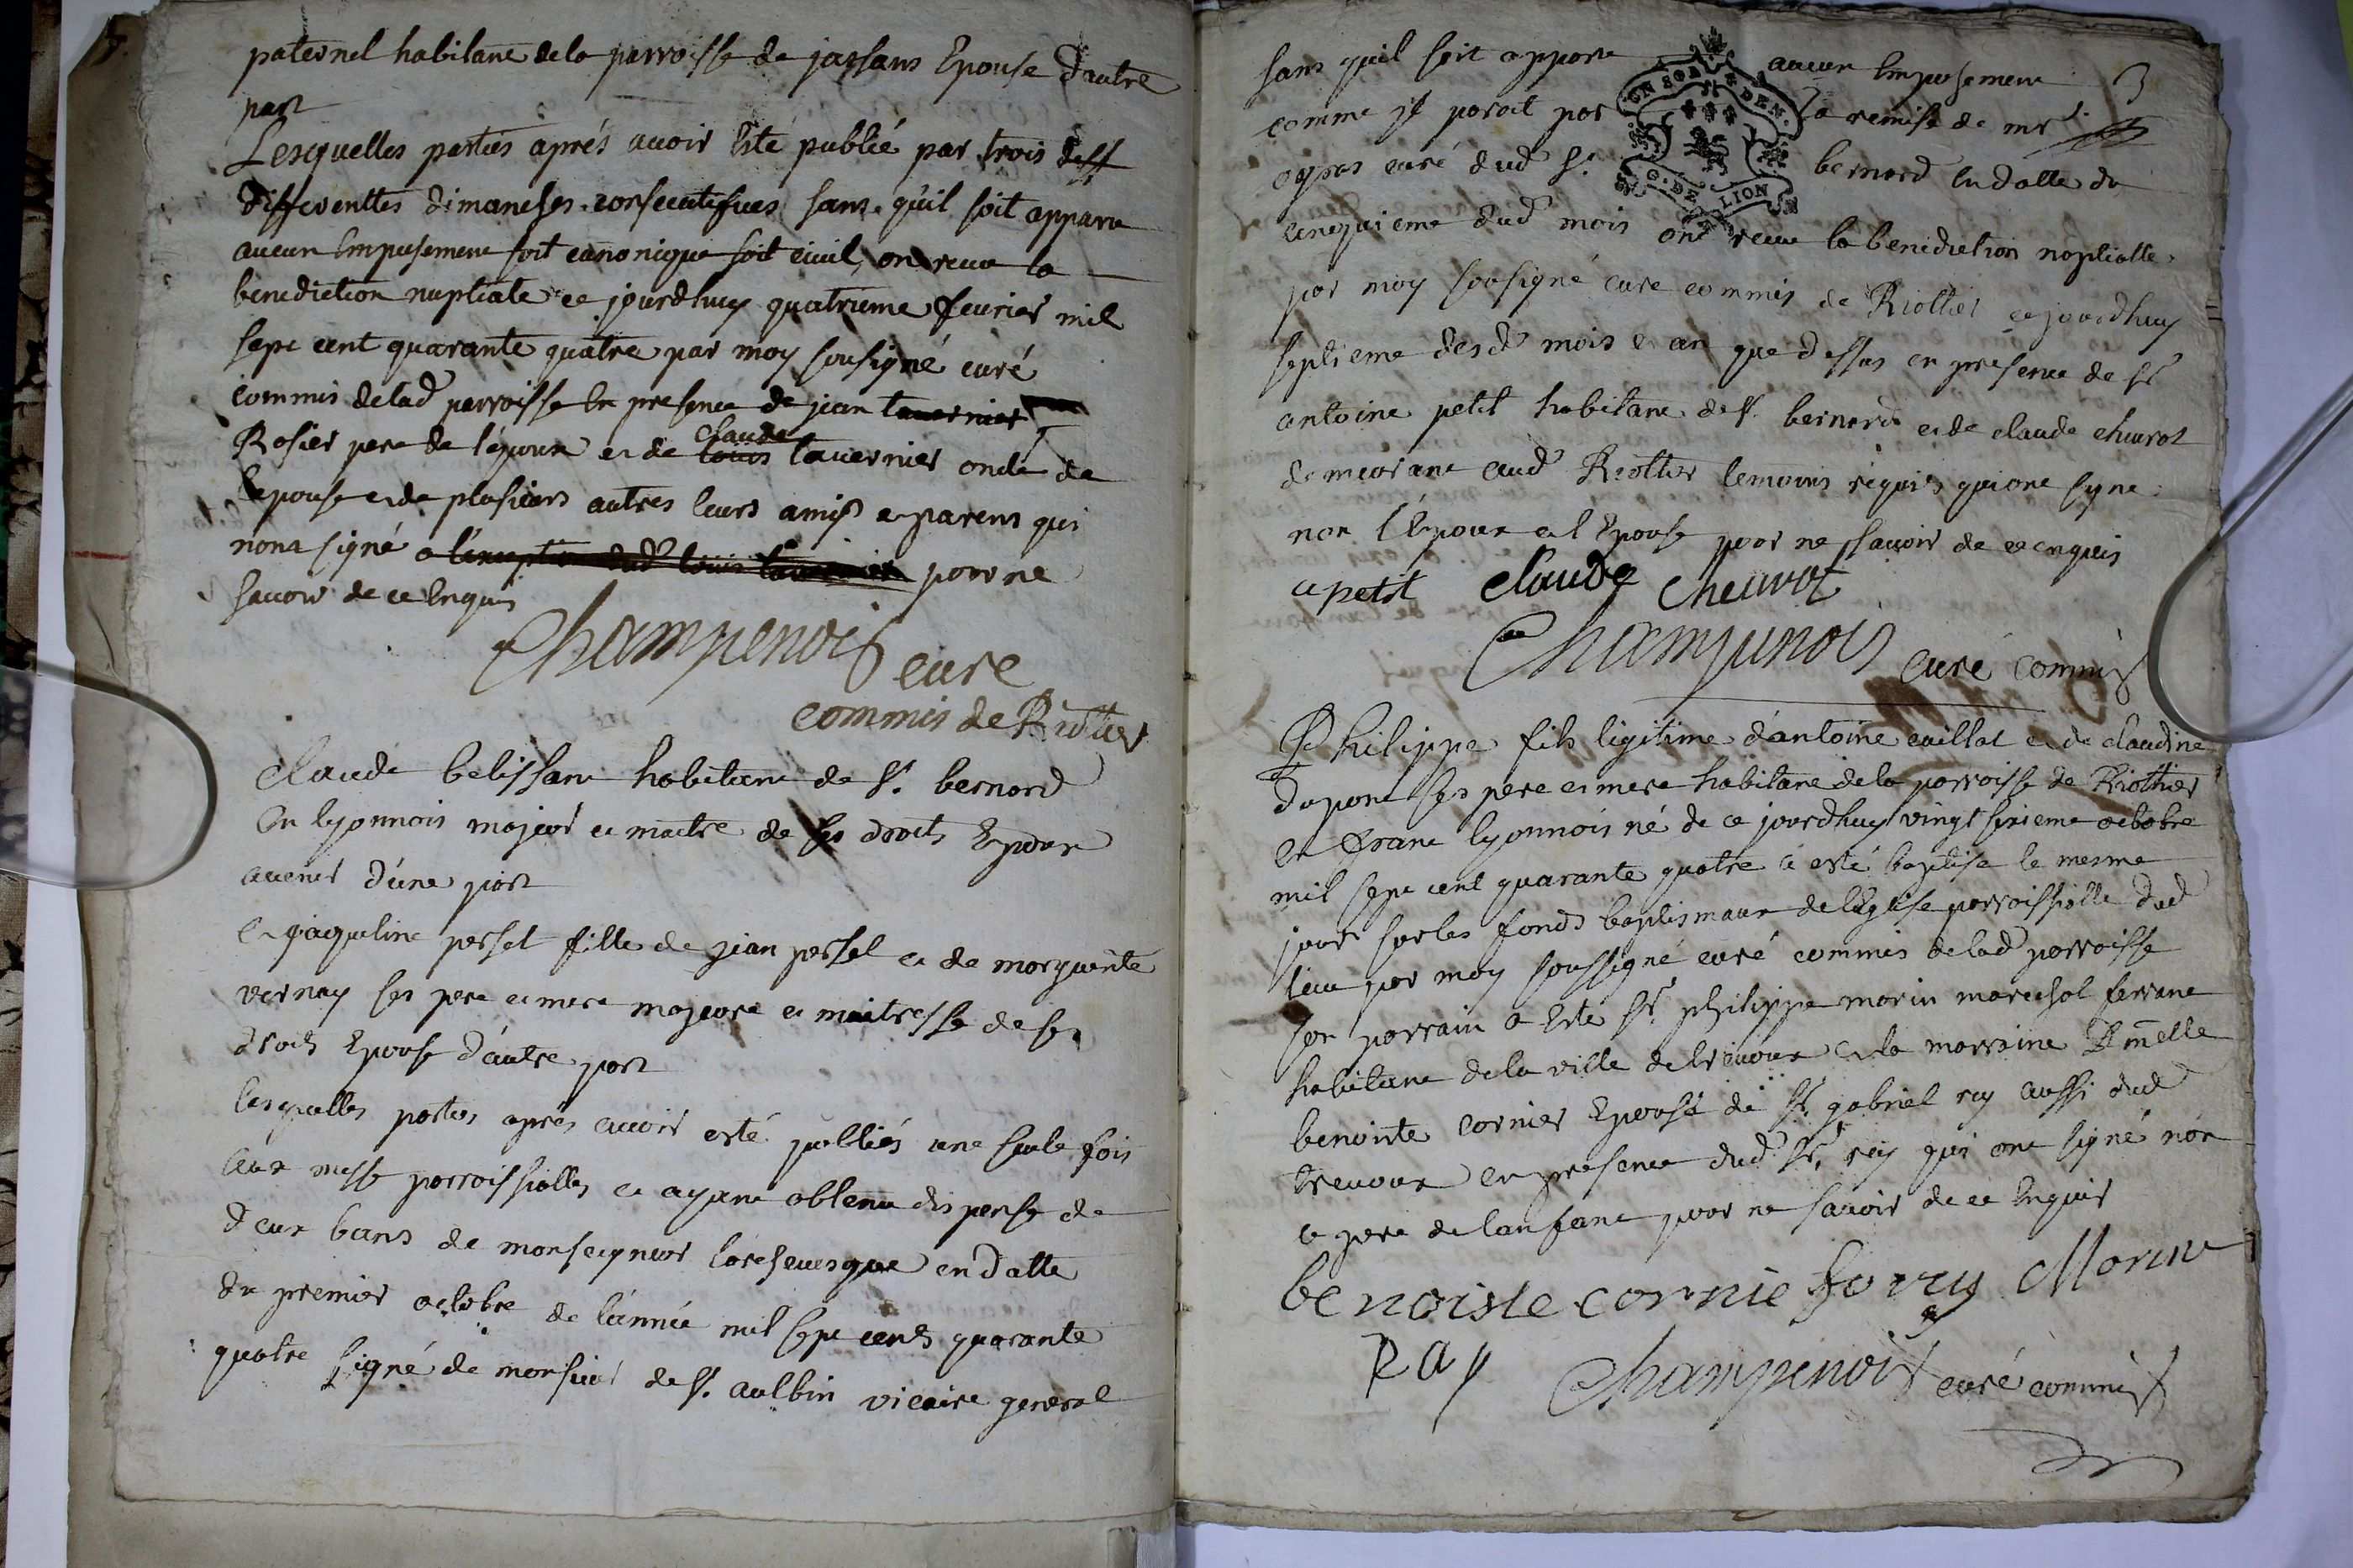 paternel habitant de la parroisse de jassans Epouse d'autre
part
Lesquelles parties aprés avoir esté publié par trois diff
differenttes dimanches consecutifues sans qu'il soit apparu
aucun Empesement soit canonique soit civil, on receu la
benediction nuptiale ce jourdhuy quatrieme feurier mil
sept cent quarante quatre par moy sousigné curé
commis de lad parroisse En presence de jean tavernier
Rosier pere de l'époux et de louis claude tavernier oncle de
l'epouse et de plusieurs autres leurs amis et parens qui
nont signé a l'exception dud louis tavernier pour ne
sauoir de ce Enquis
Champenois curé
commis de Riottier
Claude belissant habitant de St. bernard
En lyonnois majeur et maitre de ses droits Epoux
avenir d'une part
Et jaqueline perset fille de jean perset et de marguerite
vernay ses pere et mere majeure et maitresse de ses
droits Epouse d'autre part
lesquelles parties aprés avoir esté publiés une seule fois
aux messe parroissialles et ayant obtenu dispense de
deux bans de monseigneur l'archeuesque en datte
du premier octobre de l'année mil sept cents quarante
quatre signé de monsieur de St. aulbin vicaire general
3
sans quil soit apparu aucun Empesement
comme il paroit par la remise de mr.
curé dud St. bernard en datte du
cinquieme dud mois ont receu la benediction noptialle
par moy sousigné curé commis de Riottier ce jourdhuy
septieme desd mois et an que dessus en presence de Sr
antoine petit habitant de St. bernard et de claude chuvot
demeurant aud Riottier temoins réquis qui ont signé
non l'Epoux et l'Epouse pour ne sçavoir de ce enquis
a petit Claude Cheuvot
Champenois curé commis
Philippe fils légitime d'antoine caillat et de claudine
dupont ses pere et mere habitant de la parroisse de Riottier
en franc lyonnois né de ce jourdhuy vingt sixieme octobre
mil sept cent quarante quatre a esté baptisé le mesme
jour sur les fonds baptismaux de l'Eglise parroissialle dud
lieu par moy soussigné curé commis de lad parroisse
son parrain a Esté Sr. philippe morin marechal ferrant
habitant de la ville de trevoux et la marraine Dmelle
benoite cornier Epouse de Sr. gabriel rey aussi dud
trevoux en presence dud Sr. rey qui ont signé non
le pere de lanfant pour ne sauoir de ce Enquis
benoiste cornie Morin
Ray Champenois curé commis